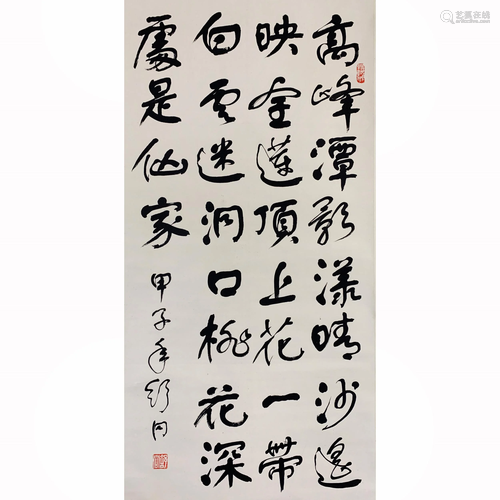 高峰潭影漾晴沙遙
映金蓮頂上花一帶
白雲迷洞口桃花深
處是仙家
甲子年舒同
艺狐在线